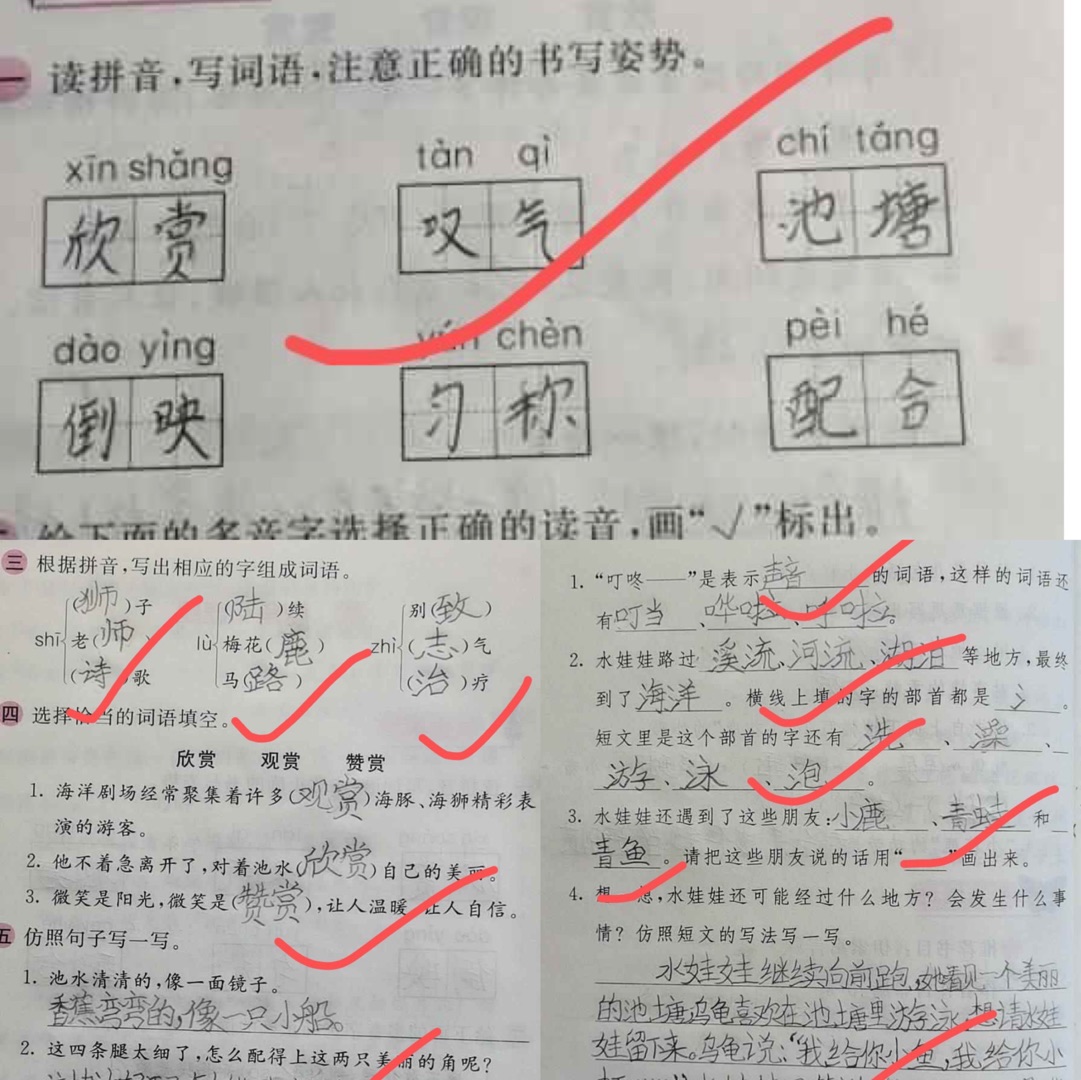 一 读拼音，写词语，注意正确的书写姿势。
xīn shǎng tàn qì chí táng
欣赏 叹气 池塘
dào yìng yún chèn pèi hé
倒映 匀称 配合
给下面的多音字选择正确的读音，画“√”标出。
三 根据拼音，写出相应的字组成词语。
(狮)子 (陆)续 别(致)
shī 老(师) lù 梅花(鹿) zhì (志)气
(诗)歌 马(路) (治)疗
四 选择恰当的词语填空。
欣赏 观赏 赞赏
1. 海洋剧场经常聚集着许多(观赏)海豚、海狮精彩表
演的游客。
2. 他不着急离开了，对着池水(欣赏)自己的美丽。
3. 微笑是阳光，微笑是(赞赏)，让人温暖，让人自信。
五 仿照句子写一写。
1. 池水清清的，像一面镜子。
香蕉弯弯的，像一只小船。
2. 这四条腿太细了，怎么配得上这两只美丽的角呢？
1. “叮咚——”是表示声音的词语，这样的词语还
有叮当、哗啦、呼啦。
2. 水娃娃路过溪流、河流、湖泊等地方，最终
到了海洋。横线上填的字的部首都是氵。
短文里是这个部首的字还有洗、澡、
游、泳、泡。
3. 水娃娃还遇到了这些朋友：小鹿、青蛙和
青鱼。请把这些朋友说的话用“——”画出来。
4. 想一想，水娃娃还可能经过什么地方？会发生什么事
情？仿照短文的写法写一写。
水娃娃继续向前跑，她看见一个美丽
的池塘乌龟喜欢在池塘里游泳，想请水娃
娃留下来。乌龟说：“我给你小鱼，我给你小